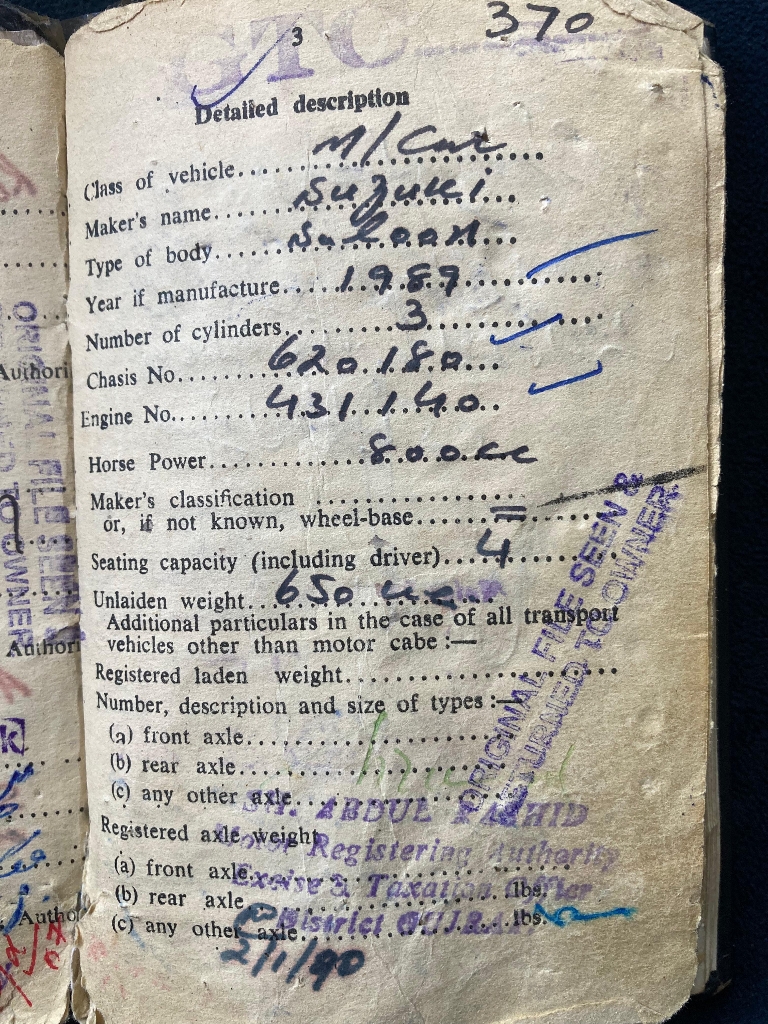 370
3
GTC
Detailed description
Class of vehicle.....M/Car.....
Maker's name.....Suzuki...
Type of body.....Saloon...
Year if manufacture....1989.....
Number of cylinders.....3.....
Chasis No.....620180...
Engine No.....431140..
Horse Power.....800cc
Maker's classification .....
or, if not known, wheel-base.....=.....
Seating capacity (including driver)....4.....
Unlaiden weight...650
Additional particulars in the case of all transport
vehicles other than motor cabe :—
Registered laden weight.....
Number, description and size of types :—
(a) front axle.....
(b) rear axle.....
(c) any other axle.....
Registered axle weight
(a) front axle.....
(b) rear axle ..... lbs.
(c) any other axle..... lbs.
2/1/90
ORIGINAL FILE SEEN &
RETURNED TO OWNER.
SH. ABDUL RASHID
Motor Registering Authority
Excise & Taxation Officer
District GUJRAT
ORIGINAL FILE SEEN &
TO OWNER
Authori
Authori
Autho